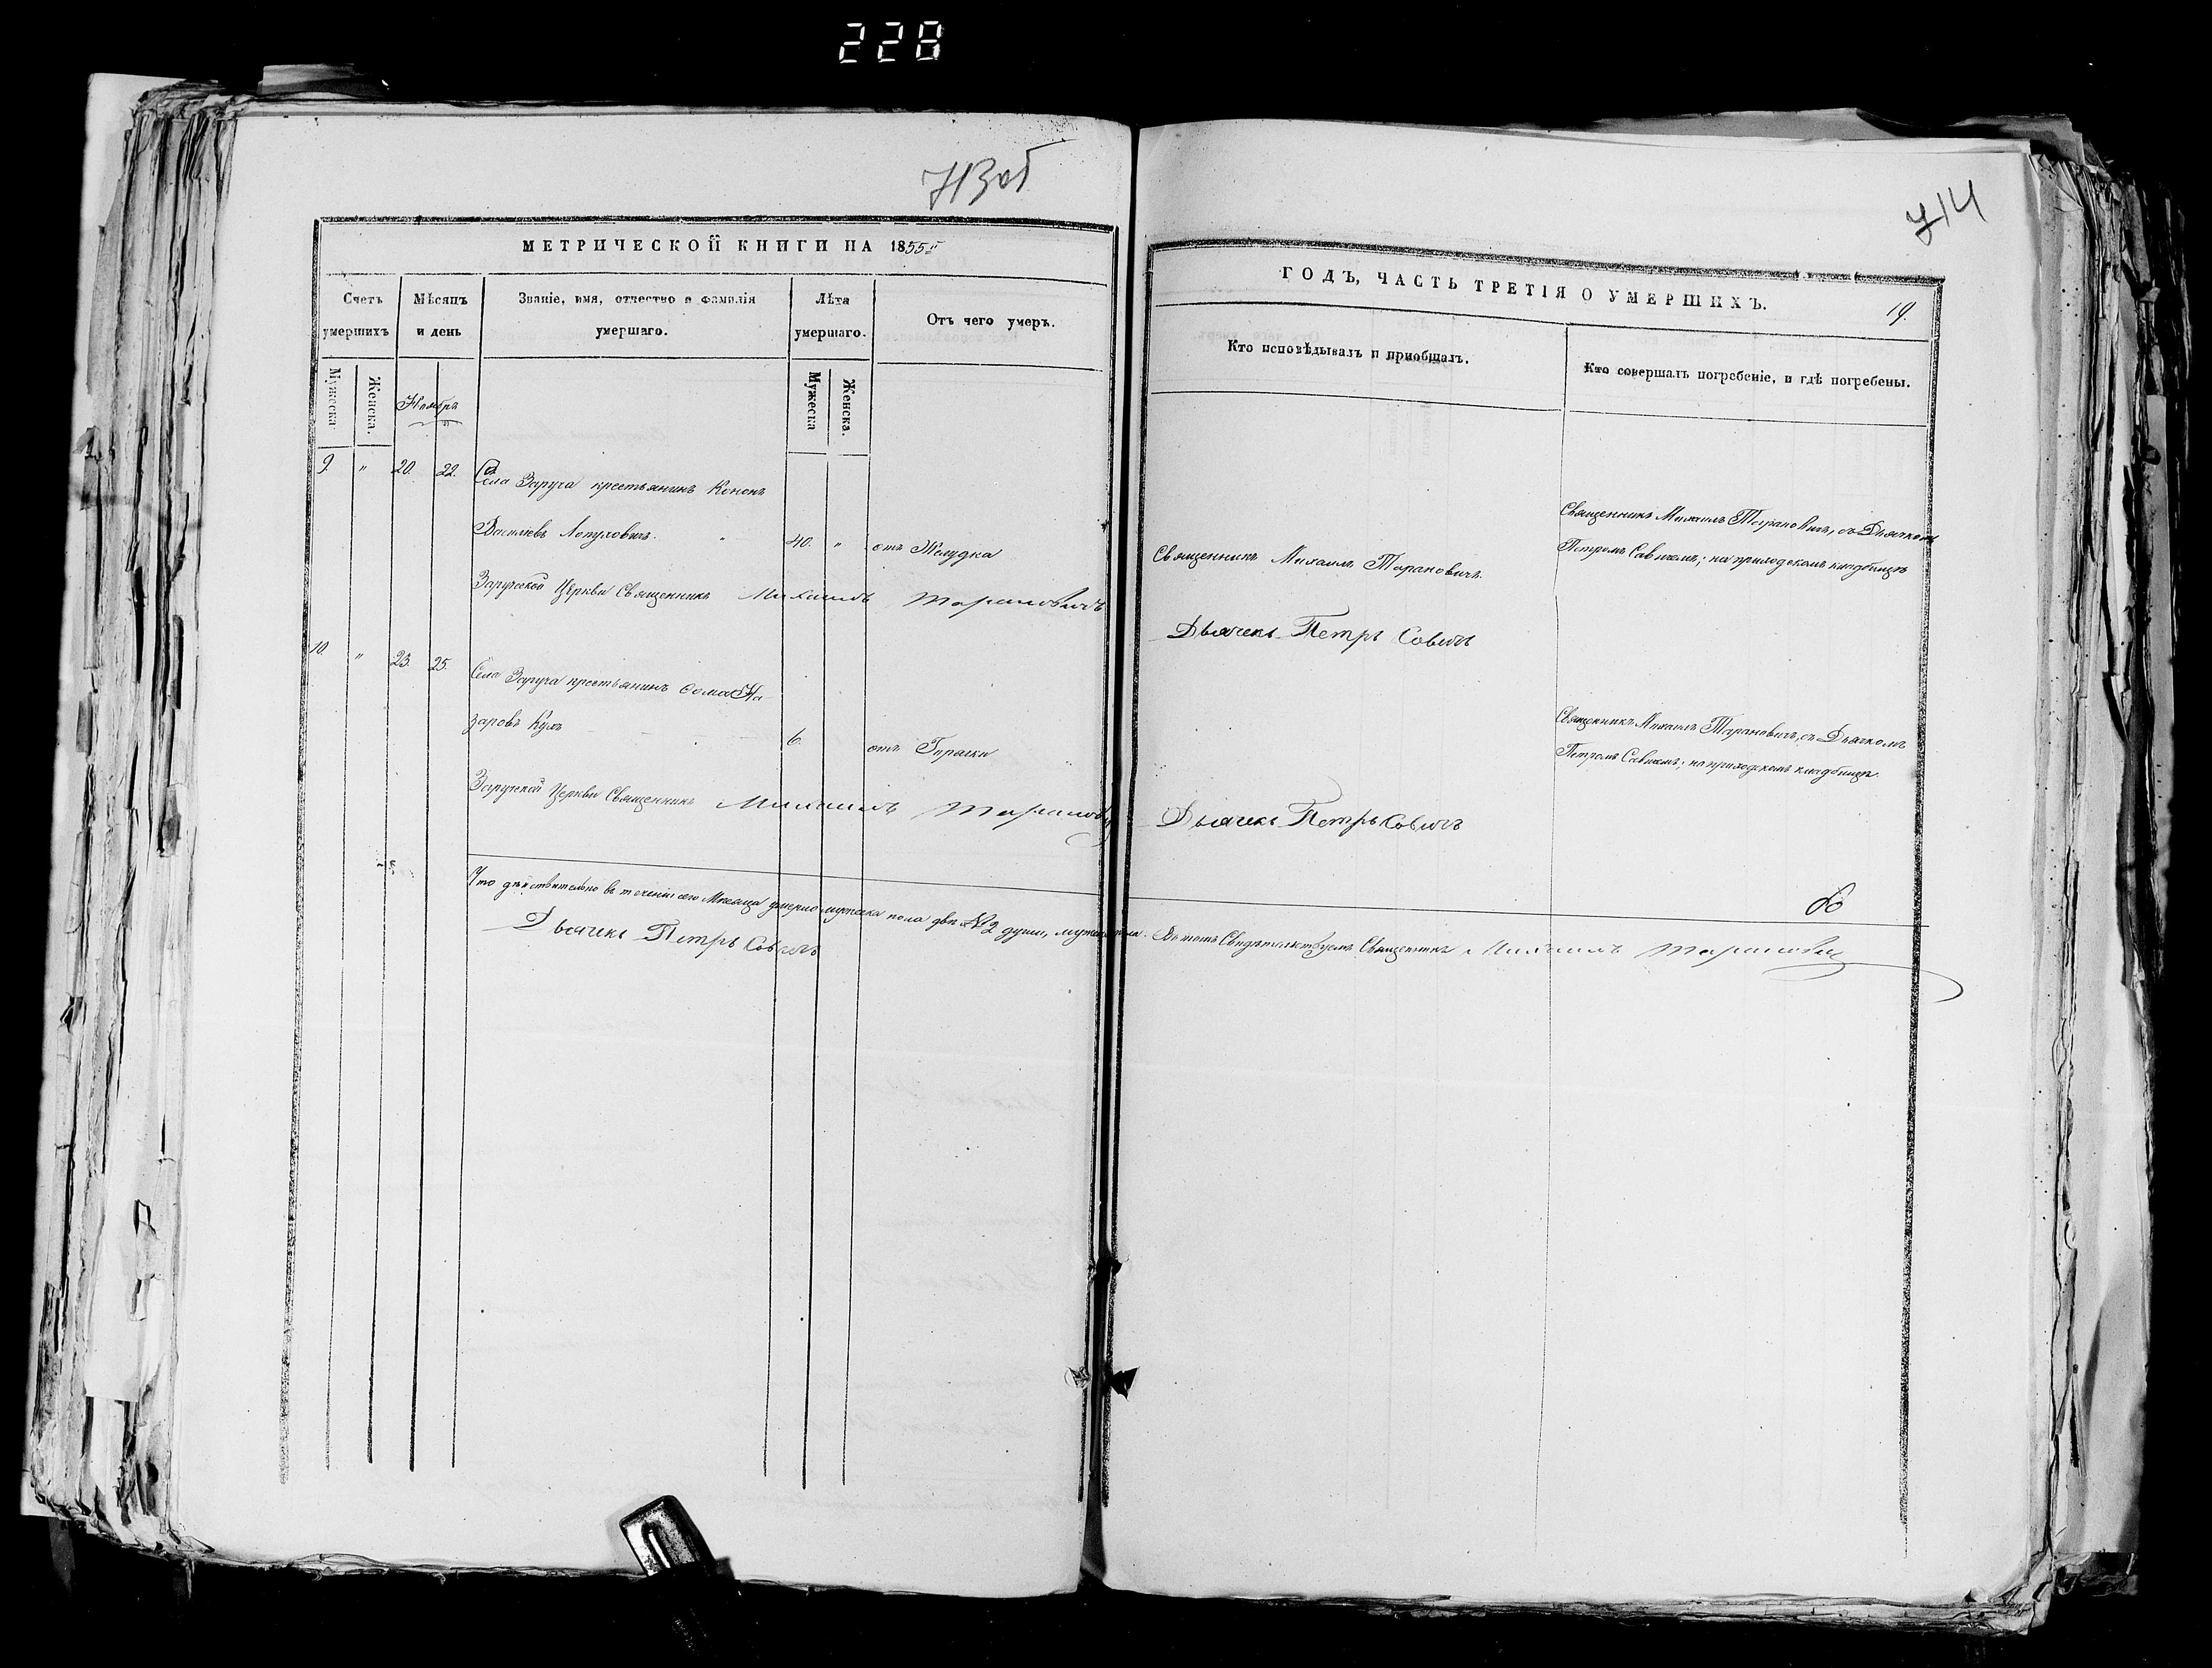 228
713об
714
МЕТРИЧЕСКОЙ КНИГИ НА 1855й
ГОДЪ, ЧАСТЬ ТРЕТІЯ О УМЕРШИХЪ.
19.
Счетъ умершихъ
Мѣсяцъ и день
Званіе, имя, отчество и фамилія умершаго.
Лѣта умершаго.
Отъ чего умеръ.
Кто исповѣдывалъ и пріобщалъ.
Кто совершалъ погребеніе, и гдѣ погребены.
Мужеска
Женска.
Мужеска
Женска.
Ноябрь
9. " 20. 22. Села Заруча крестьянинъ Кононъ
Васильевъ Лопуховичъ. 40. " отъ Желудка
Священникъ Михаилъ Тарановичъ.
Священникъ Михаилъ Тарановичъ, съ Дьячкомъ
Петромъ Савичемъ; на приходскомъ кладбищѣ
Заручской Церкви Священникъ Михаилъ Тарановичъ
Дьячекъ Петръ Савичъ
10. " 23. 25. Села Заруча крестьянинъ Ѳома На-
заровъ 6. отъ Горячки
Священникъ Михаилъ Тарановичъ, съ Дьячкомъ
Петромъ Савичемъ; на приходскомъ кладбищѣ.
Заручской Церкви Священникъ Михаилъ Тарановичъ
Дьячекъ Петръ Савичъ
Что дѣйствительно въ теченіи сего Мѣсяца умерло мужеска пола двѣ №2 души, мужеска пола. Въ томъ Свидѣтельствуемъ Священникъ Михаилъ Тарановичъ
Дьячекъ Петръ Савичъ